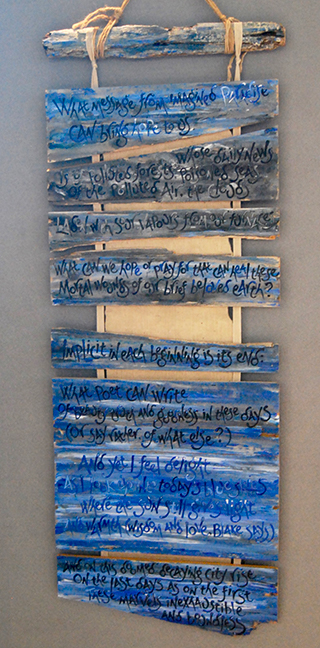 What message from imagined Paradise
can bring hope to us,
Whose daily news
is of polluted forests, poisoned seas
of the polluted air, the
from our
What can we hope or pray for that can heal these
Mortal wounds of our brief beloved earth?
Implicit in each beginning is its end:
What poet can write
of beauty and goodness in these days
(Or say rather, of what else?)
And yet I feel delight
As I today's blue skies
Where the sun still gives light
and warmth (wisdom and love, Blake says)
And in this doomed decaying city rise
On the last days as on the first
These marvels inexhaustible
and boundless